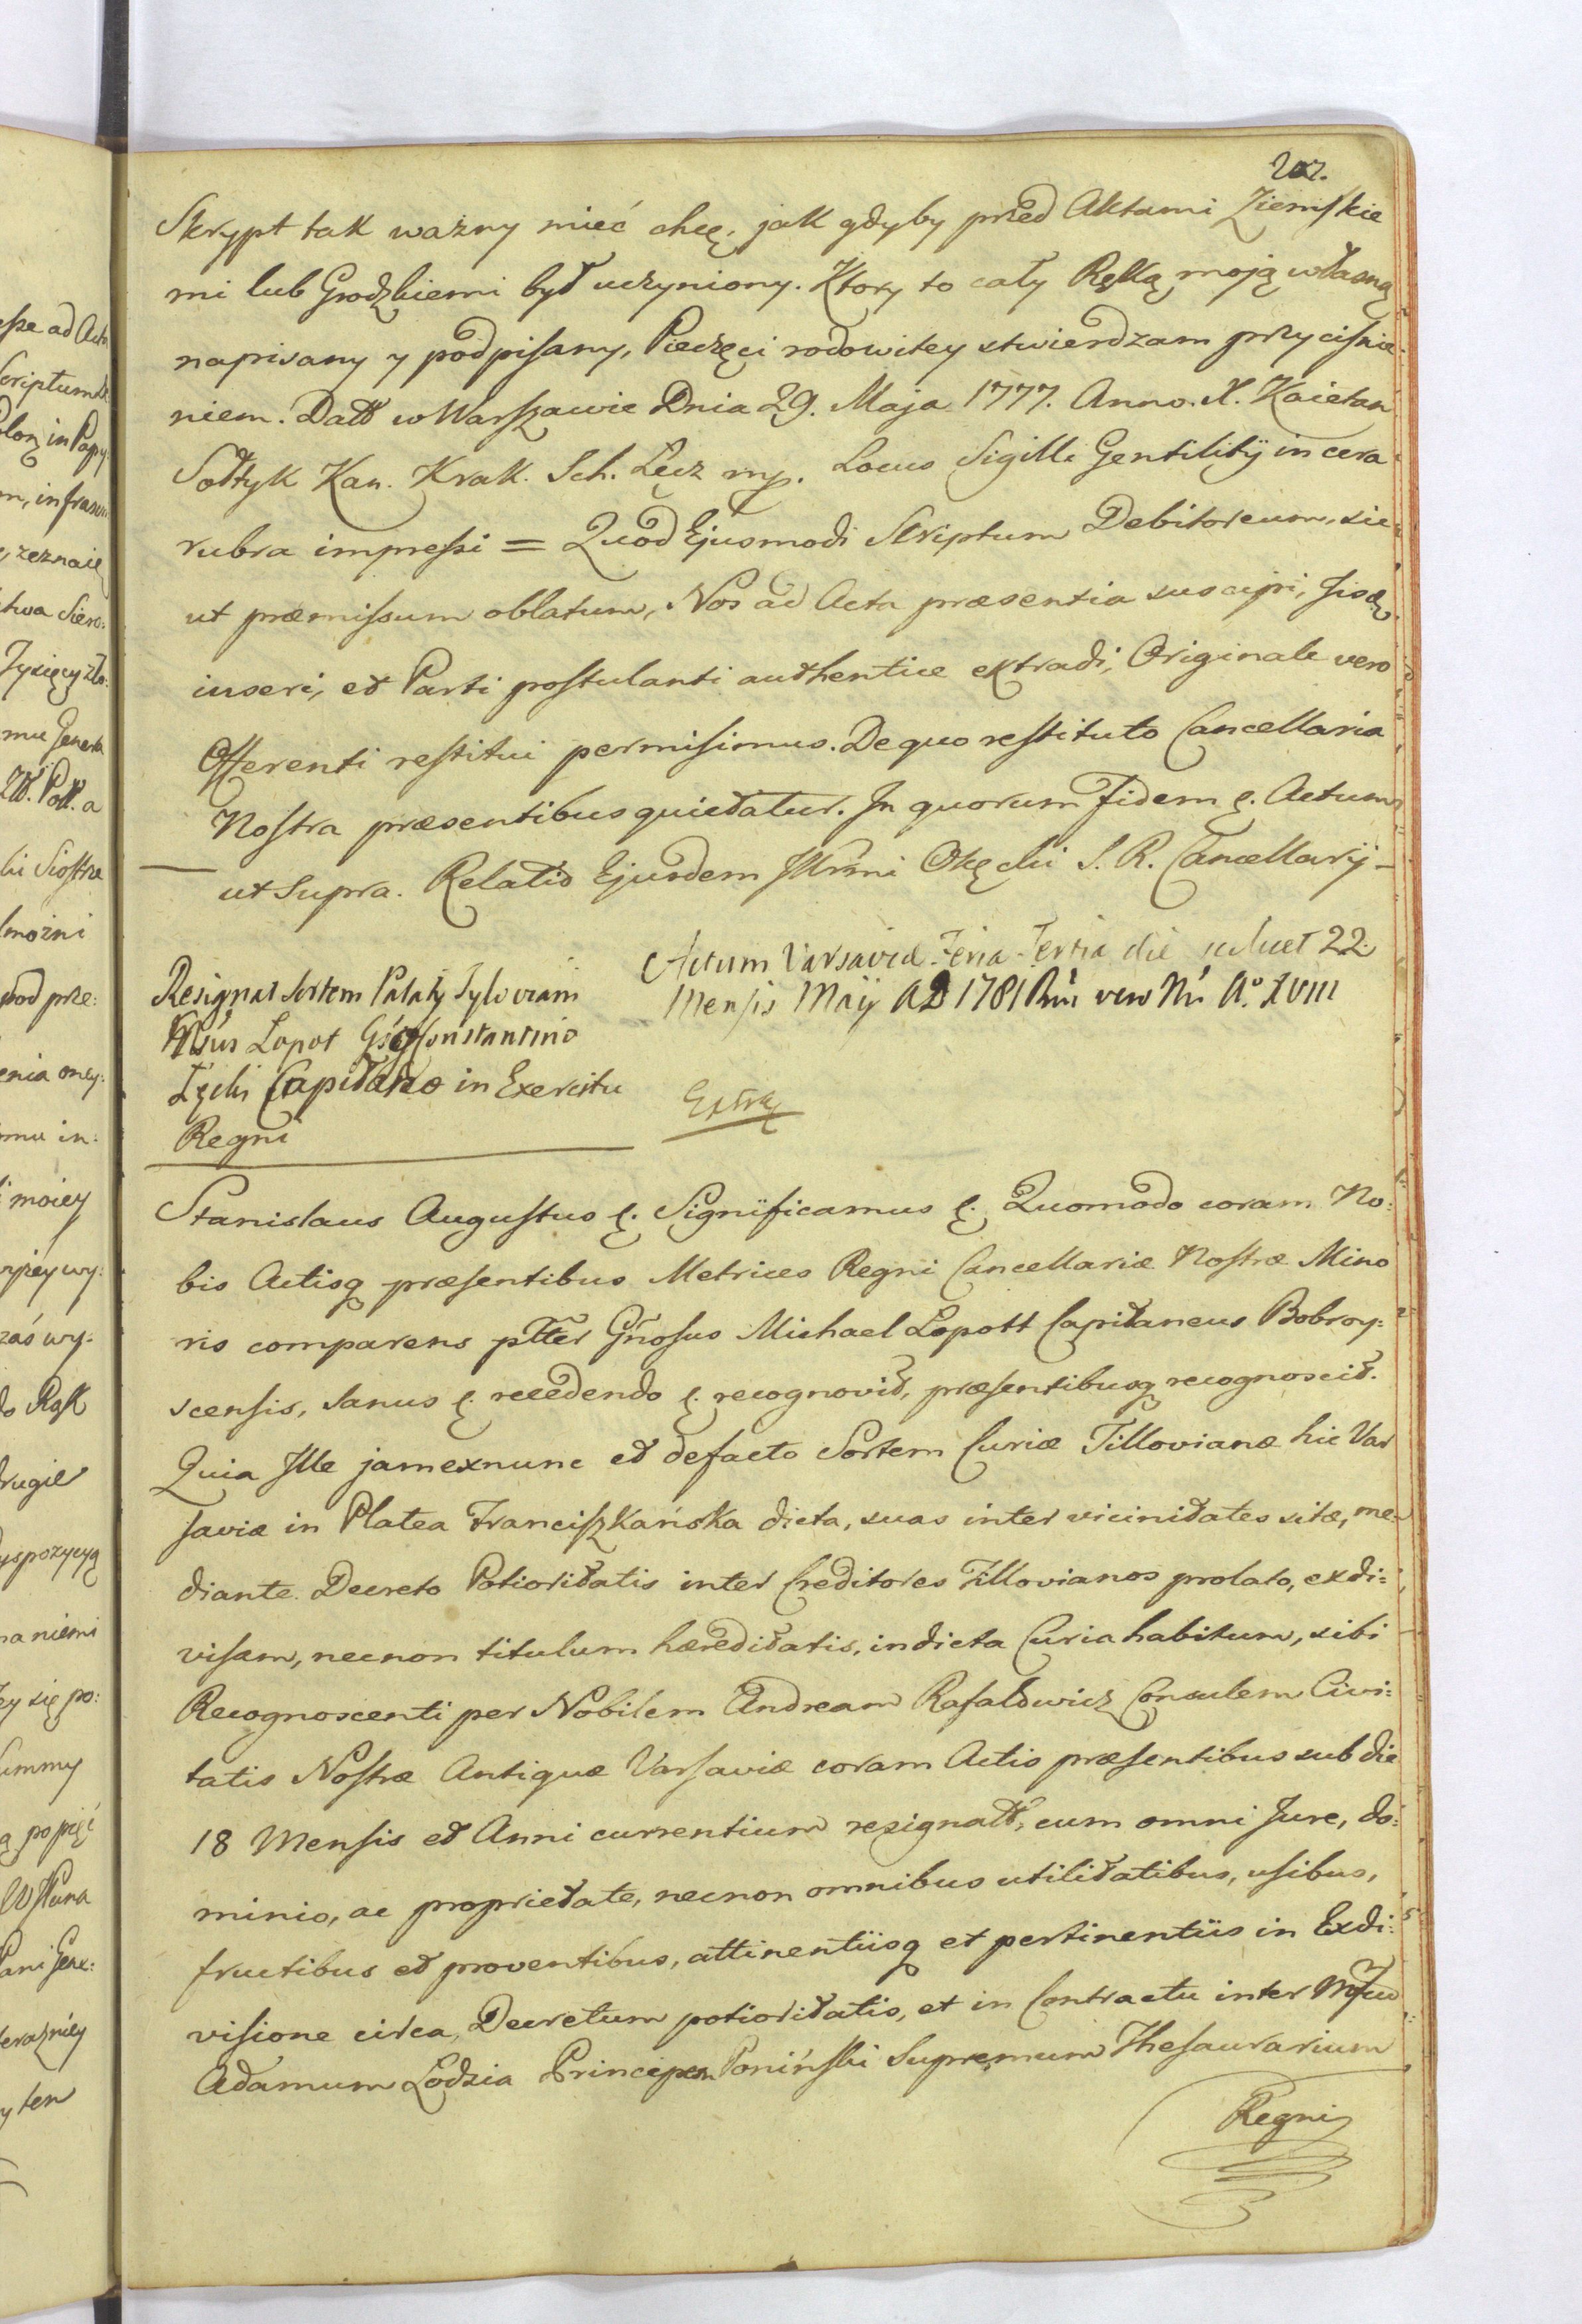 202.
Skrypt tak ważny mieć chcę, jak gdyby przed Aktami Ziemskie
mi lub Grodzkiemi był uczyniony. Ktory to cały Ręką moją własną
napisany y podpisany, Pieczęci rodowitey stwierdzam przyciśnie:
niem. Datt w Warszawie Dnia 29. Maja 1777. Anno. X. Kaietan
Sołtyk Kan. Krak. Sch. Łęcz mp. Locus Sigilli Gentilitÿ in cera
rubra impressi = Quod Ejusmodi Scriptum Debitoreum, sic
ut præmissum oblatum, Nos ad Acta præsentia suscipi, Jisdq
inseri, et Parti postulanti authentice extradi, Originale vero
Offerenti restitui permisimus. De quo restituto Cancellaria
Nostra præsentibus quietatur. In quorum Fidem &. Actum
ut supra. Relatio Ejusdem Illrmi Okęcki S. R. Cancellarÿ –
Actum Varsaviæ Feria Tertia die scilicet 22.
Mensis Maÿ AD 1781 Rni vero Nri Ao XVIII
Resignat Sortem Palatÿ Tyloviani
Lopot Constantino
Łęcki Capitaneo in Exercitu
Regni
Extra
Stanislaus Augustus &. Significamus &. Quomodo coram No:
bis Actisq præsentibus Metrices Regni Cancellariæ Nostræ Mino
ris comparens pltter Gnosus Michael Lopott Capitaneus Bobroy:
scensis, sanus &. recedendo &. recognovit, præsentibusq recognoscit.
Quia Ille jam exnunc et defacto Sortem Curiæ Tillovianæ hic Var
saviæ in Platea Franciszkańska dicta, suas inter vicinitates sitæ, me
diante Decreto Potioritatis inter Creditores Tillovianos prolato, exdi:
visam, necnon titulum hæreditatis, in dicta Curia habitum, sibi
Recognoscenti per Nobilem Andream Rafałowicz Consulem Civi:
tatis Nostræ Antiquæ Varsaviæ coram Actis præsentibus sub die
18 Mensis et Anni currentium resignatt, cum omni Jure, do:
minio, ac proprietate, necnon omnibus utilitatibus, usibus,
fructibus et proventibus, attinentiisq et pertinentiis in Exdi:
visione circa Decretum potioritatis, et in Contractu inter
Adamum Łodzia Principem Poniński Supremum Thesaurarium
Regni